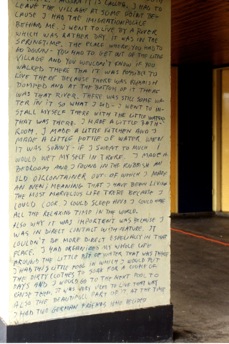 LEAVE IT IS CALLED. I HAD TO
LEAVE THE VILLAGE AT SOME POINT BE-
CAUSE I HAD THE IMMIGRATION POLICE
BEHIND ME. I WENT TO LIVE BY A RIVER
WHICH WAS RATHER DRY. IT WAS IN THE
SPRINGTIME. THE PLACE WHERE YOU HAD TO
GO DOWN - YOU HAD TO GET OUT OF THE LITTLE
VILLAGE AND YOU WOULDN'T KNOW IF YOU
WALKED THERE THAT IT WAS POSSIBLE TO
LIVE THERE BECAUSE THERE WAS RUBBISH
DUMPED AND AT THE BOTTOM OF IT THERE
WAS THAT RIVER. THERE WAS STILL SOME WA-
TER IN IT SO WHAT I DID - I WENT TO IN-
STALL MYSELF THERE WITH THE LITTLE
THAT WAS THERE. I HAD A LITTLE BATH
ROOM, I MADE A LITTLE KITCHEN AND I
MADE A LITTLE WHERE
IT WAS SO IF I WANT TO
WOULD GET MYSELF IN THERE. I MADE A
BEDROOM AND I FOUND IN THE RUBBISH AN
OLD OIL CONTAINER OUT OF WHICH I MADE
AN OVEN, MEANING THAT I HAVE BEEN LIVING
THE MOST MARVELOUS LIFE THERE BECAUSE I
COULD COOK, I COULD SLEEP AND I COULD HAVE
ALL THE RELAXING TIMES IN THE WORLD.
ALSO WHY IT WAS IMPORTANT WAS BECAUSE I
WAS IN DIRECT CONTACT WITH NATURE. IT
COULDN'T BE MORE DIRECT ESPECIALLY IN THAT
PLACE. I HAD ORGANISED MY WHOLE LIFE
AROUND THE LITTLE BIT OF WATER THAT WAS THERE
I HAD THIS LITTLE POOL IN WHICH I WOULD PUT
THE DIRTY CLOTHES TO SOAK FOR A COUPLE OF
DAYS AND I WOULD GO TO THE NEXT POOL TO
RINSE THEM. IT WAS VERY NICE TO LIVE THAT WAY
ALSO THE BEAUTIFUL PART OF IT AT THE TIME
I HAD TWO GERMAN FRIENDS WHO HELPED